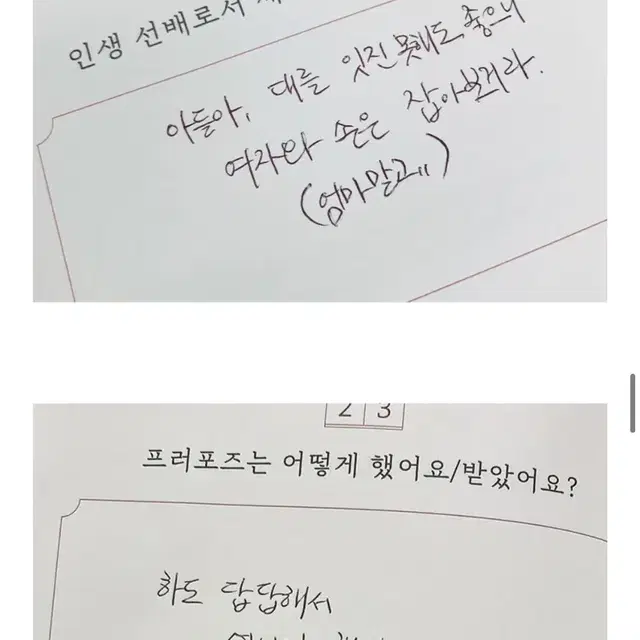 인생 선배로서
아들아, 대를 잇진 못해도 좋으니
여자와 손은 잡아보거라.
(엄마말고")
2 3
프러포즈는 어떻게 했어요/받았어요?
하도 답답해서